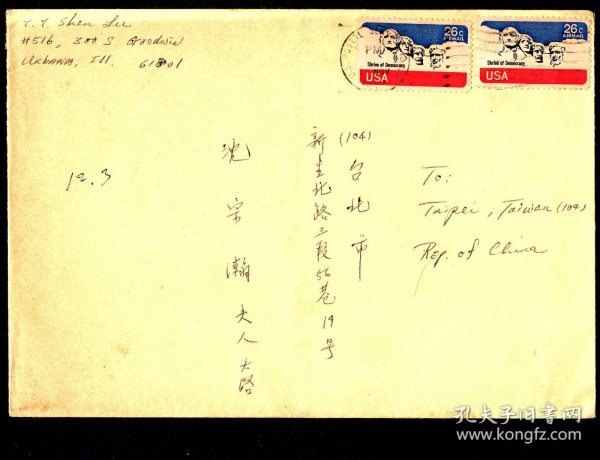 T. Y. Shen Lee
#516, 300 S. Goodwin
Urbana, Ill. 61801
26c
AIRMAIL
Shrine of Democracy
USA
26c
AIRMAIL
Shrine of Democracy
USA
PM
12.3
To:
Taipei, Taiwan (104)
Rep. of China
(104)台北市
新生北路三段56巷19号
沈宗瀚夫人大啓
孔夫子旧书网
www.kongfz.com